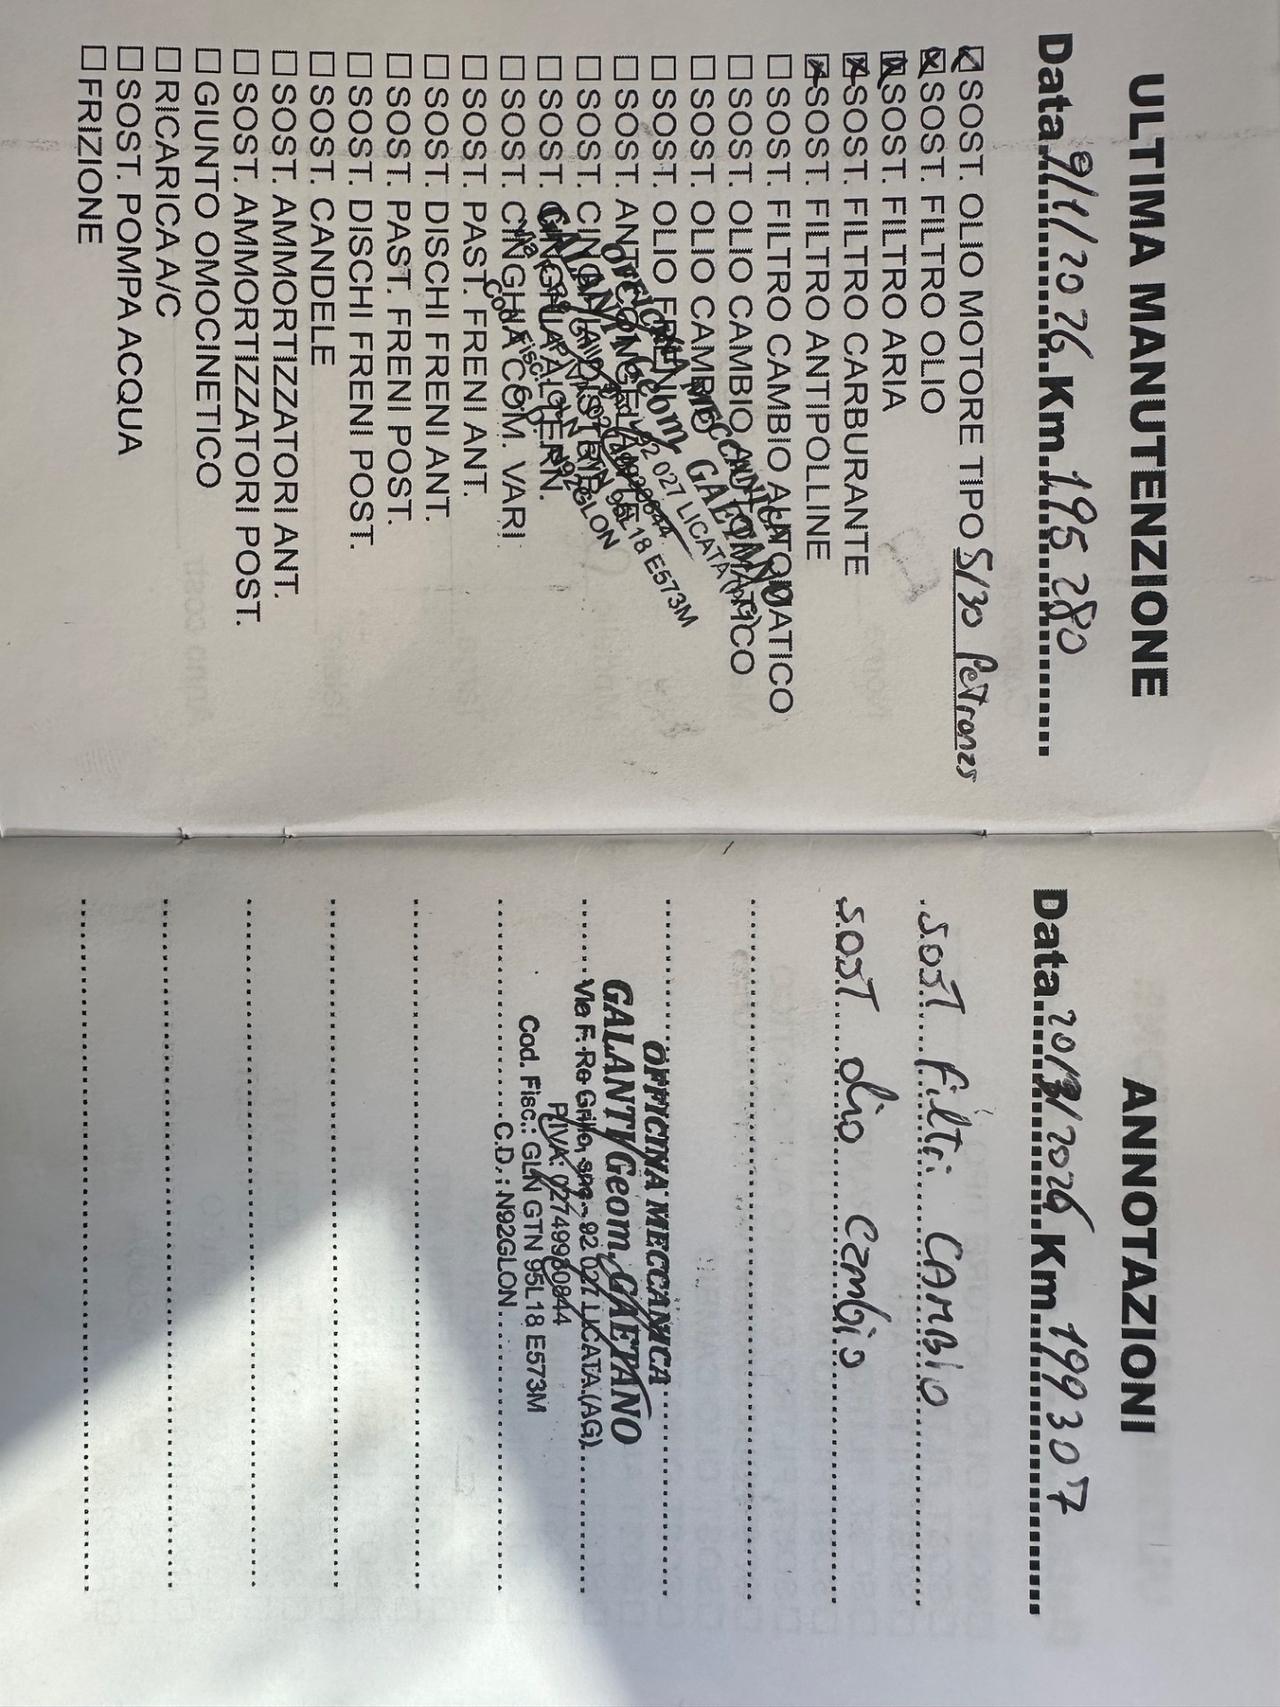 ULTIMA MANUTENZIONE
Data 9/1/2026 Km 195280
SOST. OLIO MOTORE TIPO 5/30 Petronas
SOST. FILTRO OLIO
SOST. FILTRO ARIA
SOST. FILTRO CARBURANTE
SOST. FILTRO ANTIPOLLINE
SOST. FILTRO CAMBIO AUTOMATICO
SOST. OLIO CAMBIO AUTOMATICO
SOST. OLIO CAMBIO
SOST. OLIO FRENI
SOST. ANTICONGELANTE
SOST. CINGHIA DISTRIB.
SOST. CINGHIA ALTERN.
SOST. CINGHIA COM. VARI
SOST. PAST. FRENI ANT.
SOST. DISCHI FRENI ANT.
SOST. PAST. FRENI POST.
SOST. DISCHI FRENI POST.
SOST. CANDELE
SOST. AMMORTIZZATORI ANT.
SOST. AMMORTIZZATORI POST.
GIUNTO OMOCINETICO
RICARICA A/C
SOST. POMPA ACQUA
FRIZIONE
OFFICINA MECCANICA
GALANTI Geom. GAETANO
92 027 LICATA (AG)
Cod. Fisc.
95L18 E573M
N92GLON
ANNOTAZIONI
Data 20/3/2026 Km 199307
SOST filtri CAMBIO
SOST olio cambio
OFFICINA MECCANICA
GALANTI Geom. GAETANO
Via F. Re Grillo, snc - 92 027 LICATA (AG)
P.IVA: 02749980844
Cod. Fisc.: GLN GTN 95L18 E573M
C.D.: N92GLON